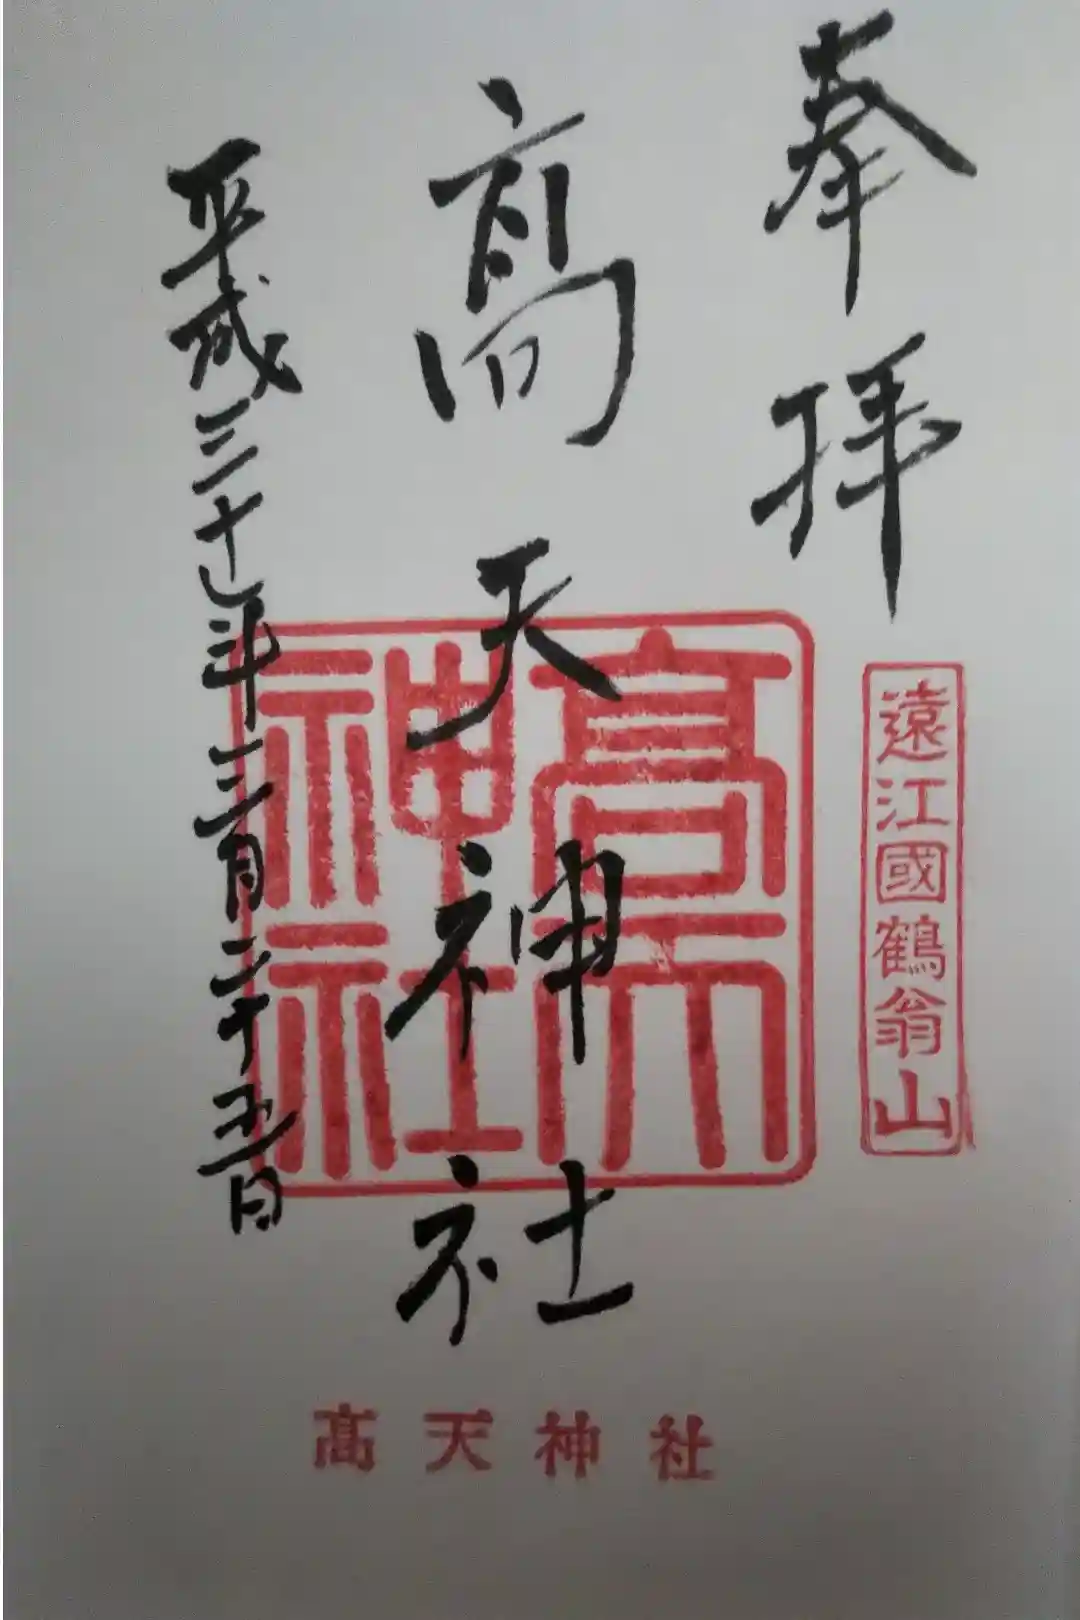 奉拝
遠江國鶴翁山
髙天神社
髙天神社
平成三十年三月二十五日
髙天神社